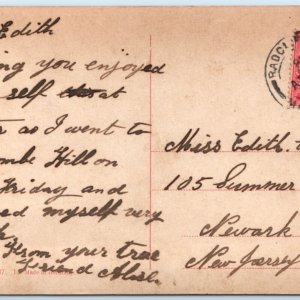 Edith
ing you enjoyed
self at
as I went to
mbe Hill on
Friday and
ed myself very
From your true
Friend
Miss Edith
105 Summer
Newark
New Jersey
RADCL